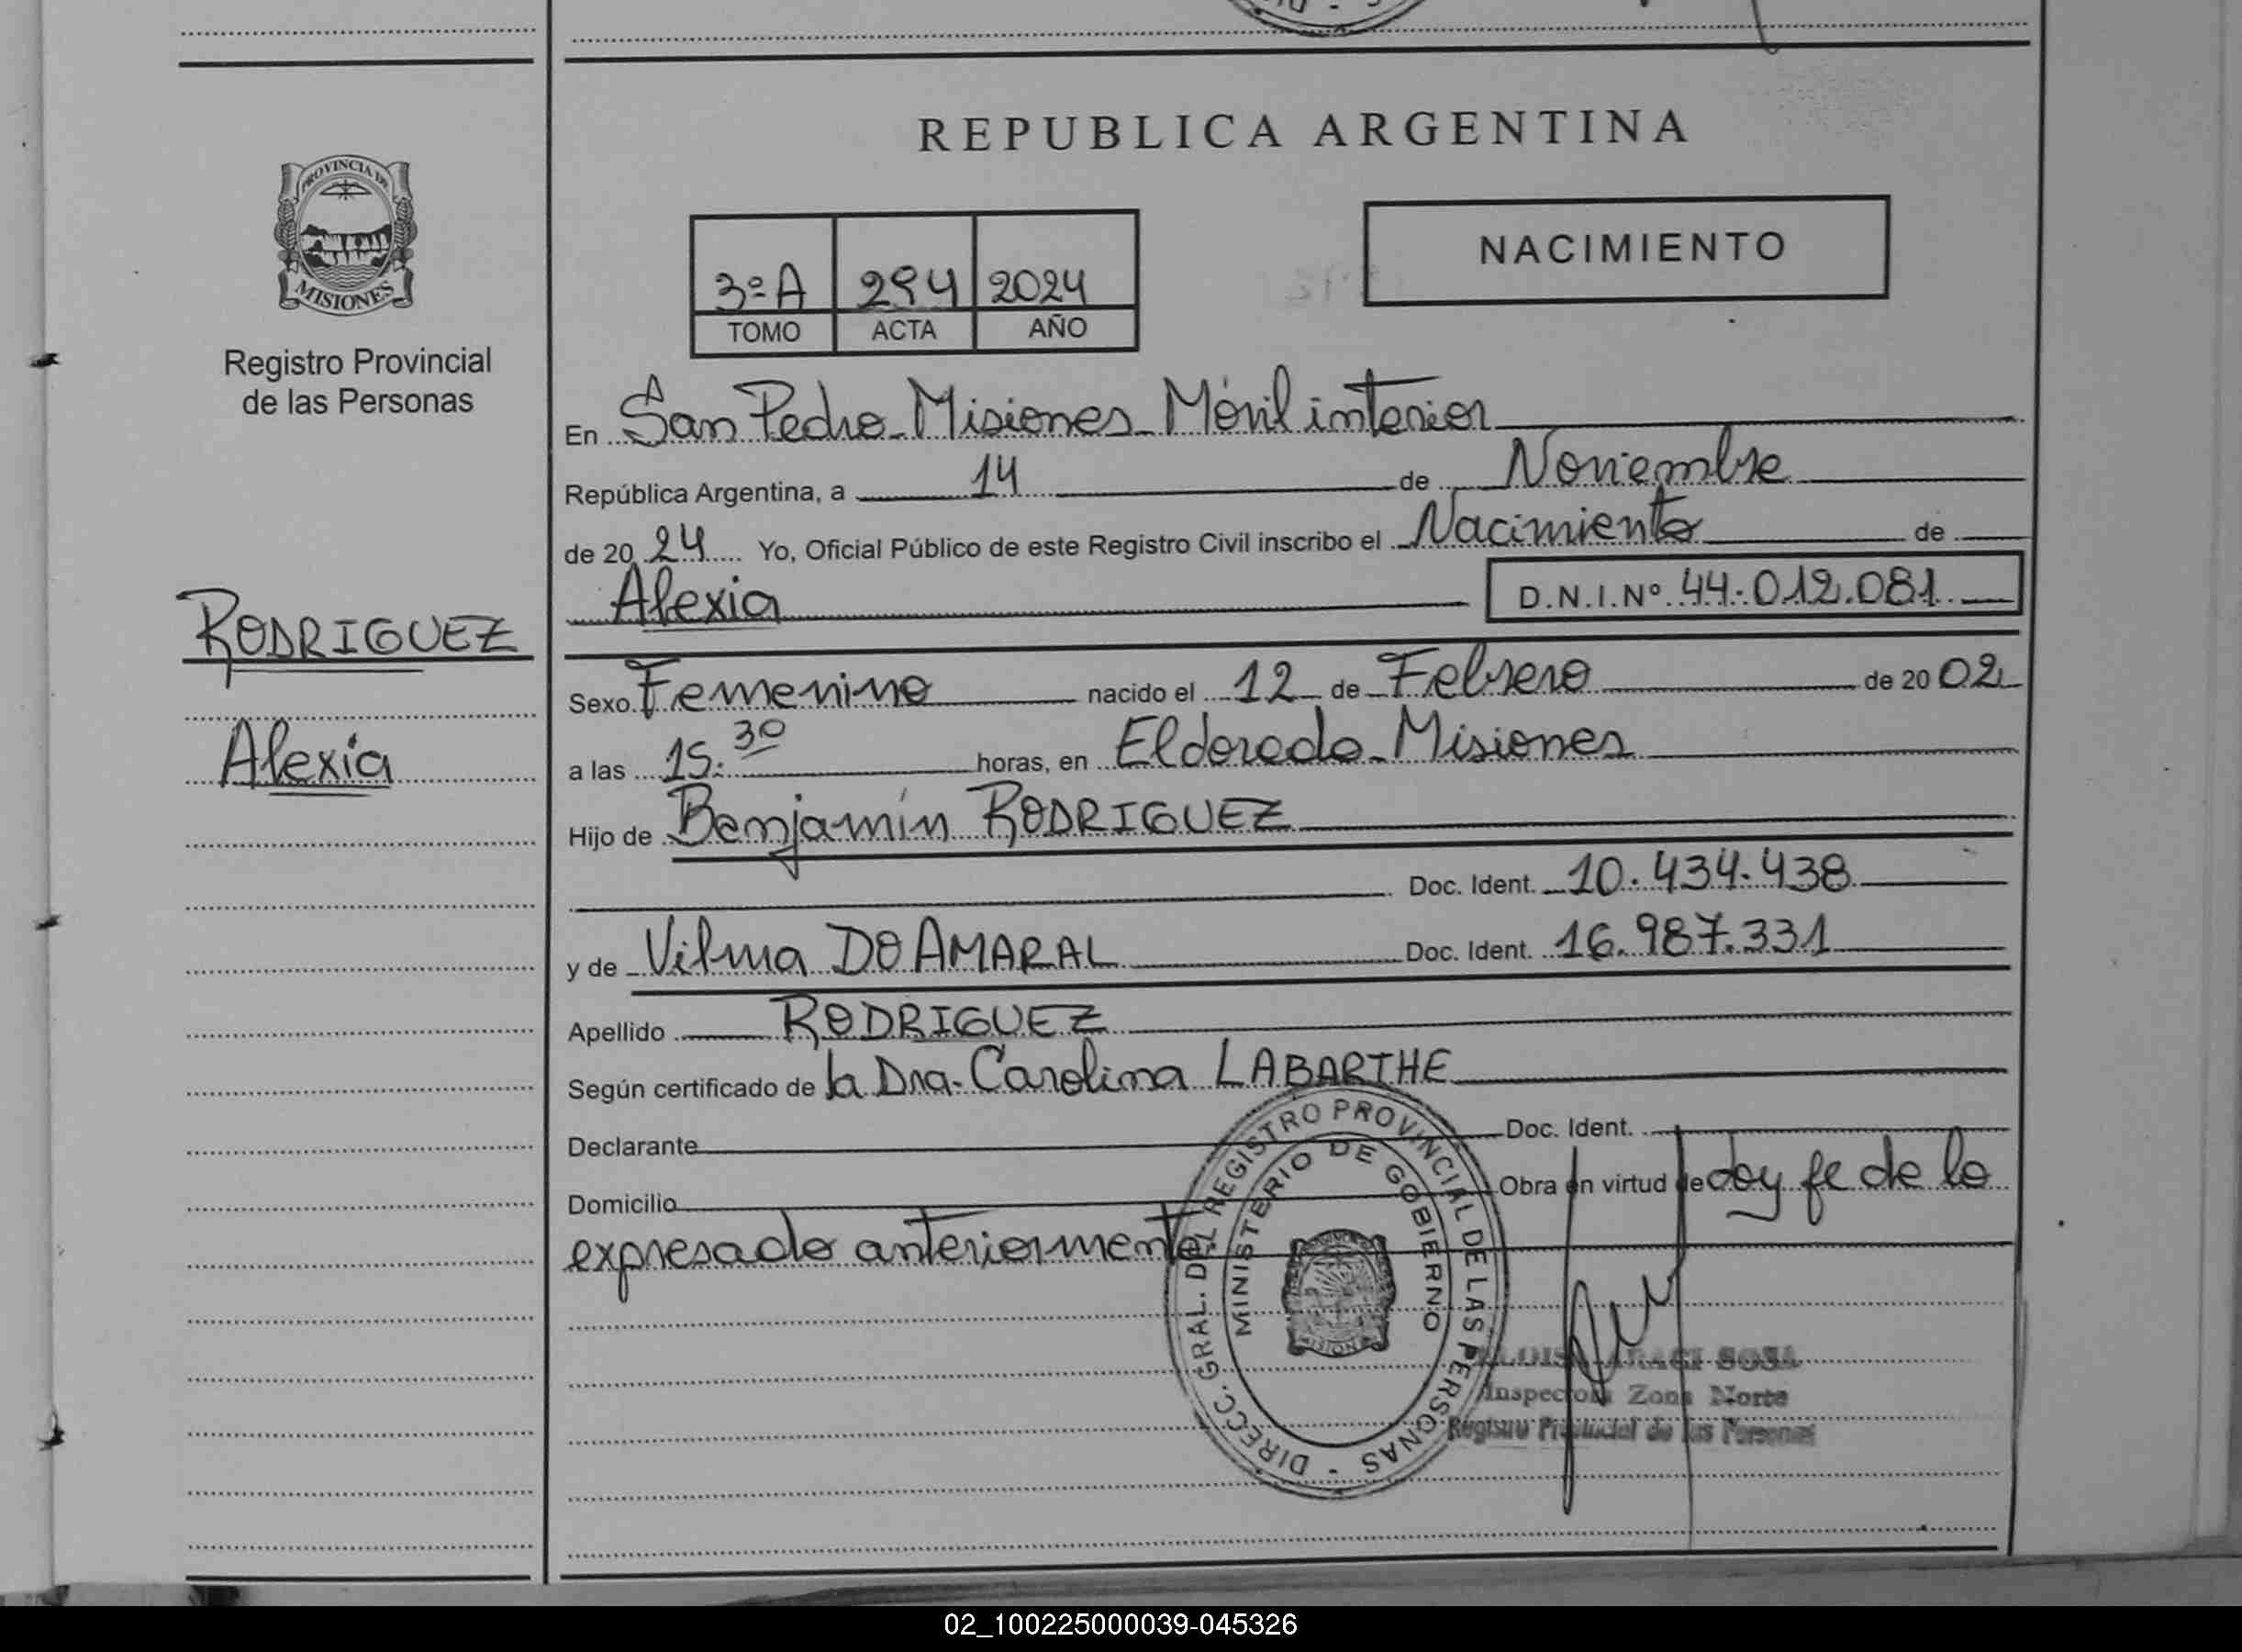 REPUBLICA ARGENTINA
PROVINCIA DE
MISIONES
Registro Provincial
de las Personas
NACIMIENTO
3º A 294 2024
TOMO ACTA AÑO
En San Pedro - Misiones - Móvil interior
República Argentina, a 14 de Noviembre
de 20 24 Yo, Oficial Público de este Registro Civil inscribo el Nacimiento de
Alexia D.N.I.Nº 44.012.081
RODRIGUEZ
Alexia
Sexo Femenino nacido el 12 de Febrero de 20 02
a las 15:30 horas, en Eldorado - Misiones
Hijo de Benjamín RODRIGUEZ
Doc. Ident. 10.434.438
y de Vilma DO AMARAL Doc. Ident. 16.987.331
Apellido RODRIGUEZ
Según certificado de la Dra. Carolina LABARTHE
Declarante Doc. Ident.
Domicilio Obra en virtud de doy fe de lo
expresado anteriormente
DIRECC. GRAL. DEL REGISTRO PROVINCIAL DE LAS PERSONAS -
MINISTERIO DE GOBIERNO
SOSA
Inspectora Zona Norte
Registro Provincial de las Personas
02_100225000039-045326